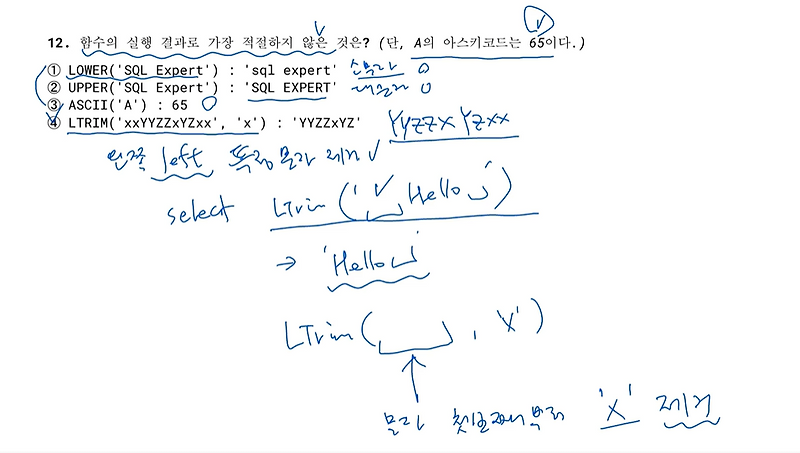 12. 함수의 실행 결과로 가장 적절하지 않은 것은? (단, A의 아스키코드는 65이다.)
① LOWER('SQL Expert') : 'sql expert' 소문자 O
② UPPER('SQL Expert') : 'SQL EXPERT' 대문자 O
③ ASCII('A') : 65 O
④ LTRIM('xxYYZZxYZxx', 'x') : 'YYZZxYZ' YYZZxYZxx
왼쪽 left 특정문자 제거
select LTrim(' Hello ')
→ 'Hello '
LTrim( , 'x')
문자 첫번째부터 'x' 제거